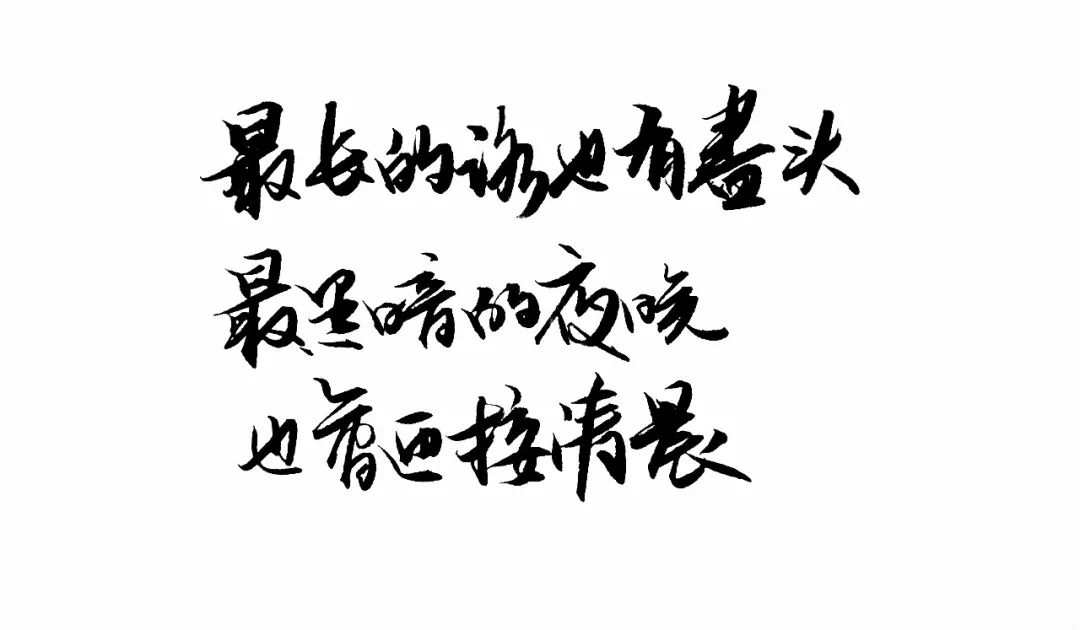 最长的路也有盡头
最黑暗的夜晚
也會迎接清晨